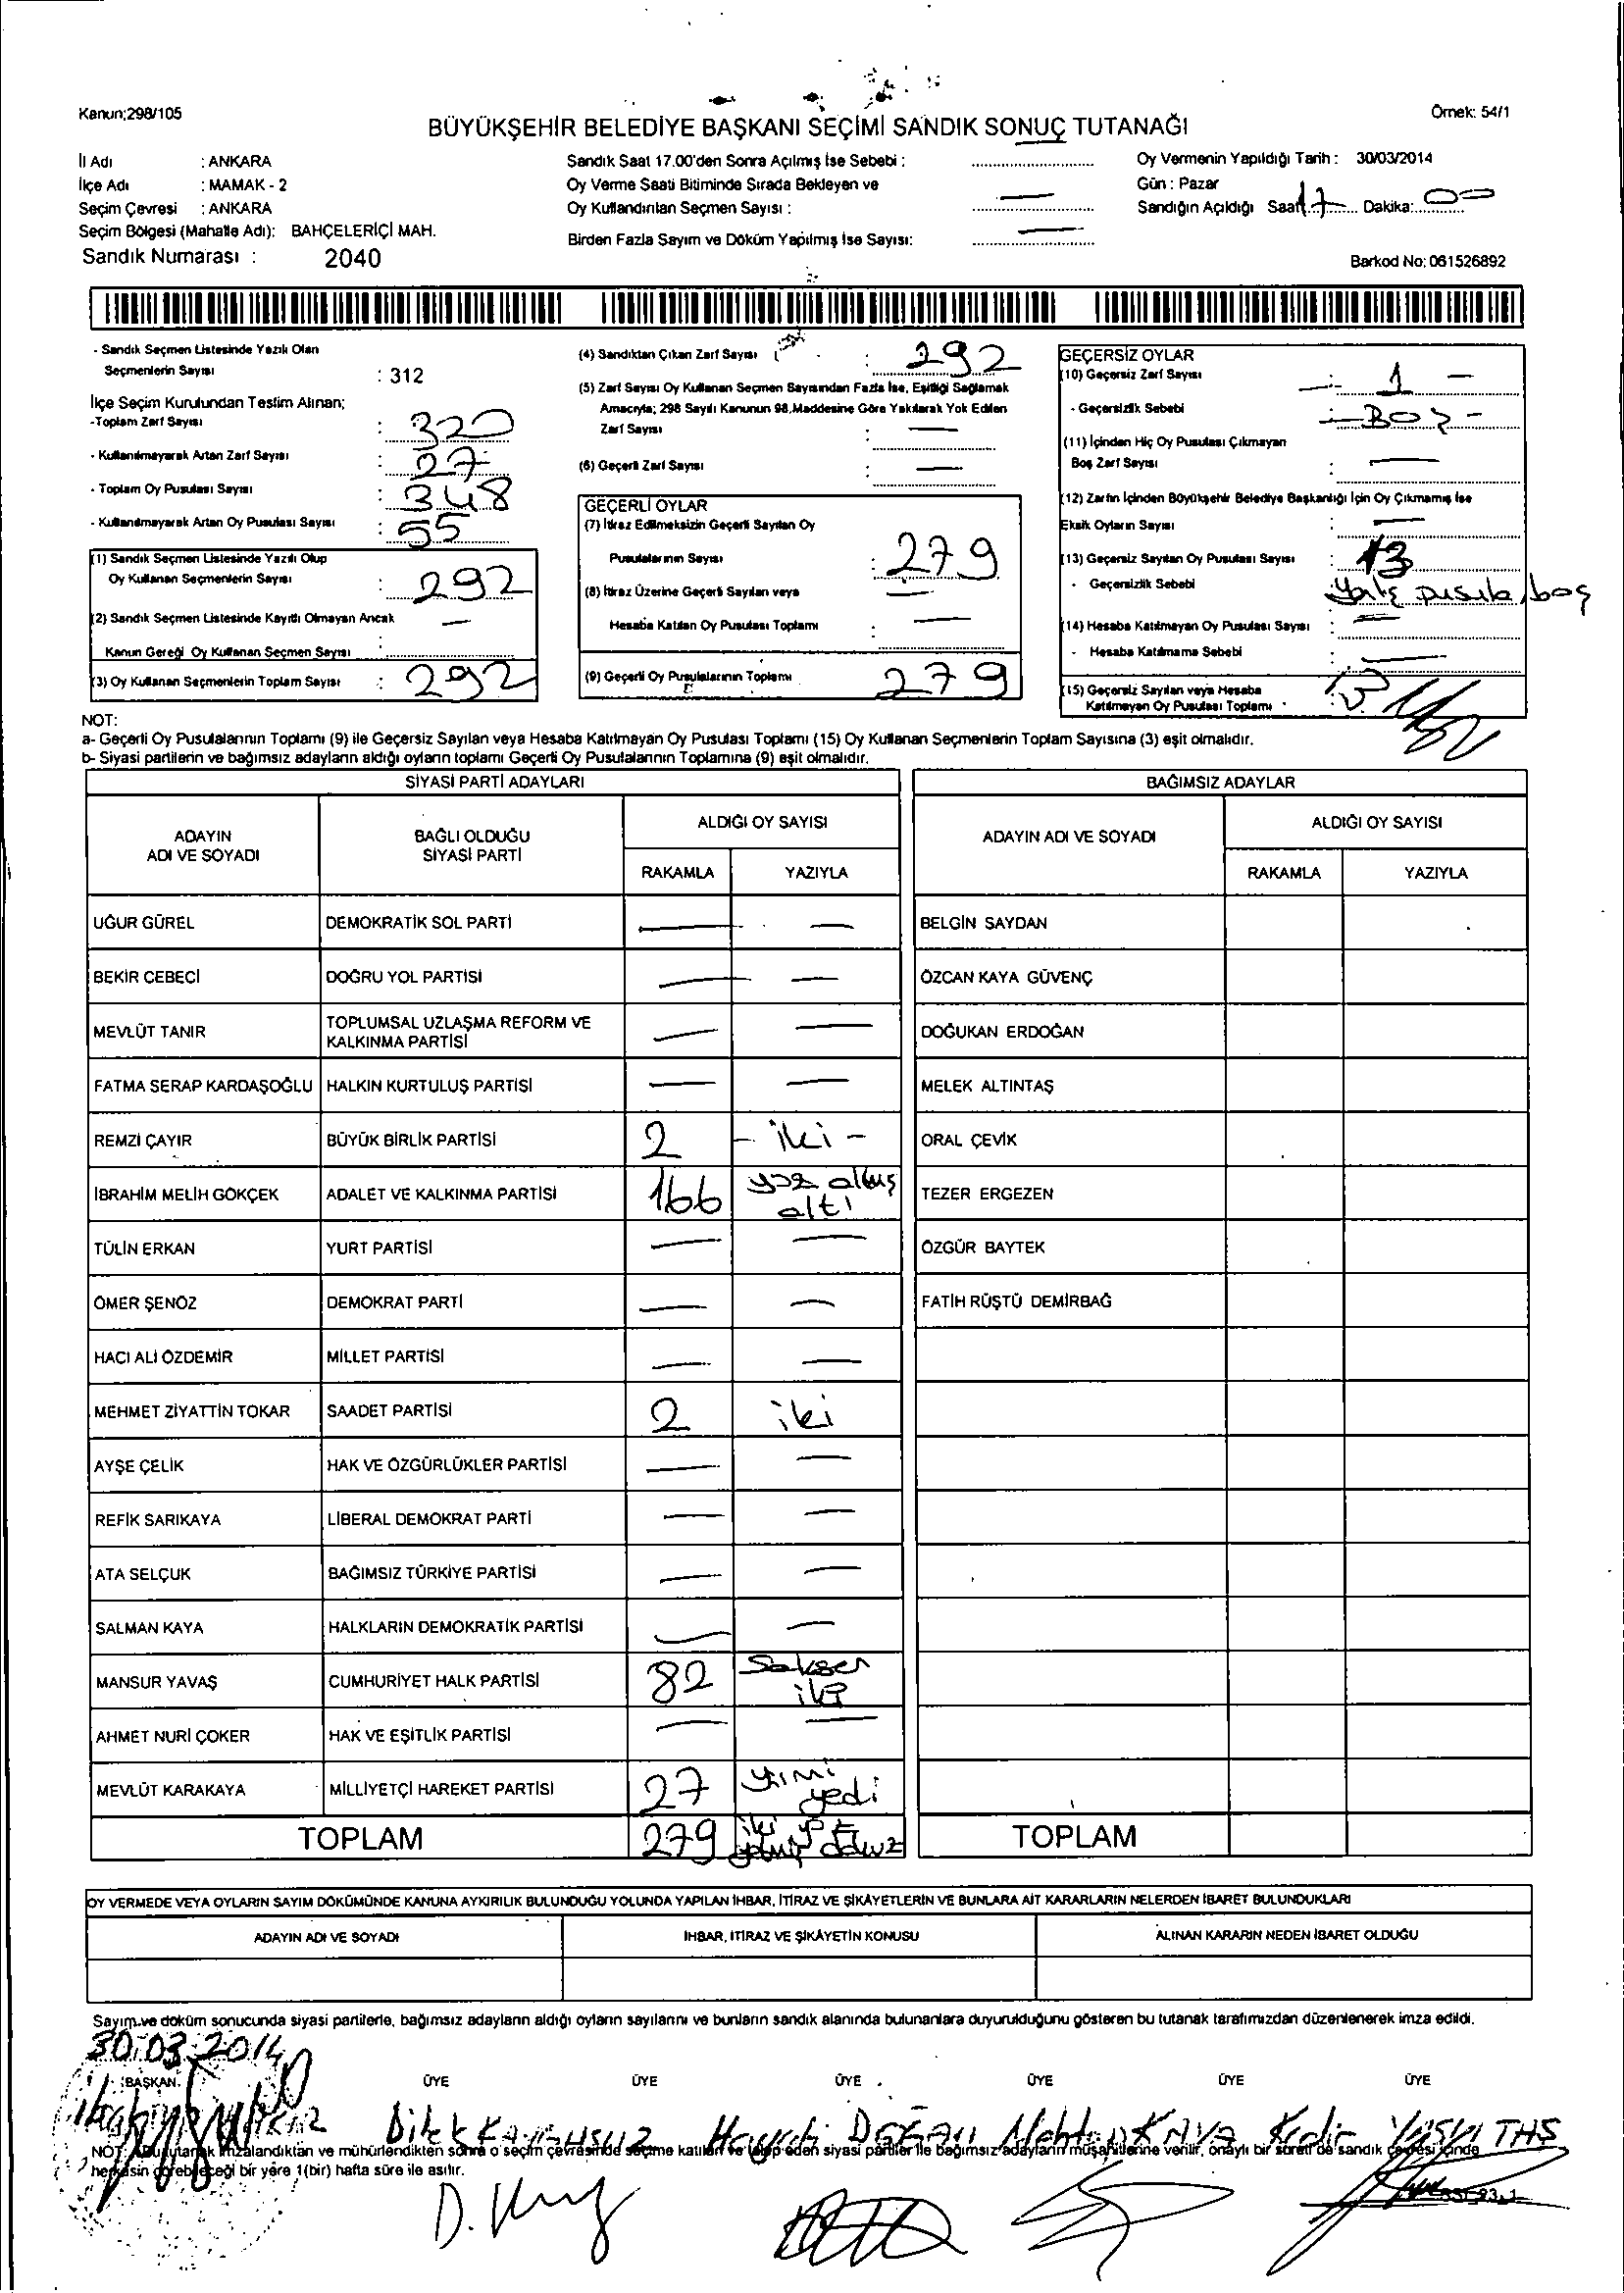 Kanun;298/105
Örnek: 54/1
BÜYÜKŞEHİR BELEDİYE BAŞKANI SEÇİMİ SANDIK SONUÇ TUTANAĞI
İl Adı : ANKARA
İlçe Adı : MAMAK - 2
Seçim Çevresi : ANKARA
Seçim Bölgesi (Mahalle Adı): BAHÇELERİÇİ MAH.
Sandık Numarası : 2040
Sandık Saat 17.00'den Sonra Açılmış İse Sebebi :
Oy Verme Saati Bitiminde Sırada Bekleyen ve
Oy Kullandırılan Seçmen Sayısı : —
Birden Fazla Sayım ve Döküm Yapılmış İse Sayısı: —
Oy Vermenin Yapıldığı Tarih : 30/03/2014
Gün : Pazar
Sandığın Açıldığı Saat 17 Dakika: 00
Barkod No: 061526892
- Sandık Seçmen Listesinde Yazılı Olan
Seçmenlerin Sayısı : 312
İlçe Seçim Kurulundan Teslim Alınan;
-Toplam Zarf Sayısı : 320
- Kullanılmayarak Artan Zarf Sayısı : 27
- Toplam Oy Pusulası Sayısı : 348
- Kullanılmayarak Artan Oy Pusulası Sayısı : 55
(1) Sandık Seçmen Listesinde Yazılı Olup
Oy Kullanan Seçmenlerin Sayısı : 292
(2) Sandık Seçmen Listesinde Kayıtlı Olmayan Ancak
Kanun Gereği Oy Kullanan Seçmen Sayısı : —
(3) Oy Kullanan Seçmenlerin Toplam Sayısı : 292
(4) Sandıktan Çıkan Zarf Sayısı : 292
(5) Zarf Sayısı Oy Kullanan Seçmen Sayısından Fazla İse, Eşitliği Sağlamak
Amacıyla; 298 Sayılı Kanunun 98.Maddesine Göre Yakılarak Yok Edilen
Zarf Sayısı : —
(6) Geçerli Zarf Sayısı : —
GEÇERLİ OYLAR
(7) İtiraz Edilmeksizin Geçerli Sayılan Oy
Pusulalarının Sayısı : 279
(8) İtiraz Üzerine Geçerli Sayılan veya
Hesaba Katılan Oy Pusulası Toplamı : —
(9) Geçerli Oy Pusulalarının Toplamı 279
GEÇERSİZ OYLAR
(10) Geçersiz Zarf Sayısı : 1 —
- Geçersizlik Sebebi : - BOŞ -
(11) İçinden Hiç Oy Pusulası Çıkmayan
Boş Zarf Sayısı : —
(12) Zarfın İçinden Büyükşehir Belediye Başkanlığı İçin Oy Çıkmamış İse
Eksik Oyların Sayısı : —
(13) Geçersiz Sayılan Oy Pusulası Sayısı : 13
- Geçersizlik Sebebi pusula, boş
(14) Hesaba Katılmayan Oy Pusulası Sayısı : —
- Hesaba Katılmama Sebebi : —
(15) Geçersiz Sayılan veya Hesaba
Katılmayan Oy Pusulası Toplamı : 13
NOT:
a- Geçerli Oy Pusulalarının Toplamı (9) ile Geçersiz Sayılan veya Hesaba Katılmayan Oy Pusulası Toplamı (15) Oy Kullanan Seçmenlerin Toplam Sayısına (3) eşit olmalıdır.
b- Siyasi partilerin ve bağımsız adayların aldığı oyların toplamı Geçerli Oy Pusulalarının Toplamına (9) eşit olmalıdır.
SİYASİ PARTİ ADAYLARI
ADAYIN ADI VE SOYADI BAĞLI OLDUĞU SİYASİ PARTİ ALDIĞI OY SAYISI
RAKAMLA YAZIYLA
UĞUR GÜREL DEMOKRATİK SOL PARTİ — —
BEKİR CEBECİ DOĞRU YOL PARTİSİ — —
MEVLÜT TANIR TOPLUMSAL UZLAŞMA REFORM VE KALKINMA PARTİSİ — —
FATMA SERAP KARDAŞOĞLU HALKIN KURTULUŞ PARTİSİ — —
REMZİ ÇAYIR BÜYÜK BİRLİK PARTİSİ 2 - iki -
İBRAHİM MELİH GÖKÇEK ADALET VE KALKINMA PARTİSİ 166 yüz altmış altı
TÜLİN ERKAN YURT PARTİSİ — —
ÖMER ŞENÖZ DEMOKRAT PARTİ — —
HACI ALİ ÖZDEMİR MİLLET PARTİSİ — —
MEHMET ZİYATTİN TOKAR SAADET PARTİSİ 2 iki
AYŞE ÇELİK HAK VE ÖZGÜRLÜKLER PARTİSİ — —
REFİK SARIKAYA LİBERAL DEMOKRAT PARTİ — —
ATA SELÇUK BAĞIMSIZ TÜRKİYE PARTİSİ — —
SALMAN KAYA HALKLARIN DEMOKRATİK PARTİSİ — —
MANSUR YAVAŞ CUMHURİYET HALK PARTİSİ 82 Seksen iki
AHMET NURİ ÇOKER HAK VE EŞİTLİK PARTİSİ — —
MEVLÜT KARAKAYA MİLLİYETÇİ HAREKET PARTİSİ 27 yirmi yedi
TOPLAM 279 iki yüz
BAĞIMSIZ ADAYLAR
ADAYIN ADI VE SOYADI ALDIĞI OY SAYISI
RAKAMLA YAZIYLA
BELGİN SAYDAN
ÖZCAN KAYA GÜVENÇ
DOĞUKAN ERDOĞAN
MELEK ALTINTAŞ
ORAL ÇEVİK
TEZER ERGEZEN
ÖZGÜR BAYTEK
FATİH RÜŞTÜ DEMİRBAĞ
TOPLAM
OY VERMEDE VEYA OYLARIN SAYIM DÖKÜMÜNDE KANUNA AYKIRILIK BULUNDUĞU YOLUNDA YAPILAN İHBAR, İTİRAZ VE ŞİKÂYETLERİN VE BUNLARA AİT KARARLARIN NELERDEN İBARET BULUNDUKLARI
ADAYIN ADI VE SOYADI İHBAR, İTİRAZ VE ŞİKÂYETİN KONUSU ALINAN KARARIN NEDEN İBARET OLDUĞU
Sayım ve döküm sonucunda siyasi partilerle, bağımsız adayların aldığı oyların sayılarını ve bunların sandık alanında bulunanlara duyurulduğunu gösteren bu tutanak tarafımızdan düzenlenerek imza edildi.
30.03.2014
BAŞKAN ÜYE ÜYE ÜYE ÜYE ÜYE ÜYE
Dilek Kaygusuz Hayati DOĞAN KAYA Kadir
NOT: Bu tutanak imzalandıktan ve mühürlendikten sonra o seçim çevresinde seçime katılan ve talep eden siyasi partiler ile bağımsız adayların müşahitlerine verilir, onaylı bir sureti de sandık çevresi içinde
herkesin görebileceği bir yere 1(bir) hafta süre ile asılır.